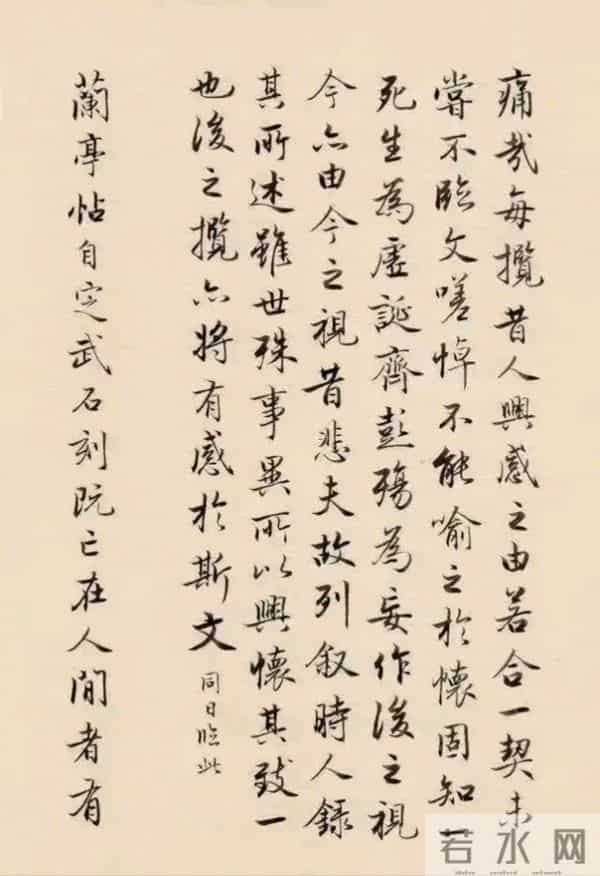 痛哉每攬昔人興感之由若合一契未
嘗不臨文嗟悼不能喻之於懷固知一
死生為虛誕齊彭殤為妄作後之視
今亦由今之視昔悲夫故列叙時人錄
其所述雖世殊事異所以興懷其致一
也後之攬亦將有感於斯文
同日臨此
蘭亭帖自定武石刻既亡在人間者有
若水网